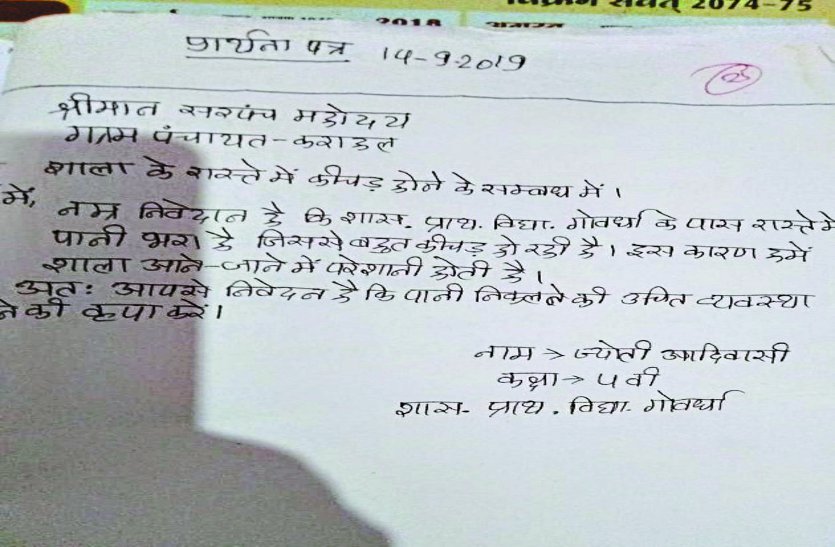 विक्रम संवत् 2074-75
2018 अगस्त
प्रार्थना पत्र 14-9-2019
श्रीमान सरपंच महोदय
ग्राम पंचायत-कराहल
शाला के रास्ते में कीचड़ होने के सम्बन्ध में।
में, नम्र निवेदन है कि शास. प्राथ. विद्या. गोवर्धा के पास रास्ते मे
पानी भरा है जिससे बहुत कीचड़ हो रही है। इस कारण हमें
शाला आने-जाने में परेशानी होती है।
अतः आपसे निवेदन है कि पानी निकलने की उचित व्यवस्था
ने की कृपा करें।
नाम → ज्योती आदिवासी
कक्षा → 5 वी
शास- प्राथ. विद्या- गोवर्धा